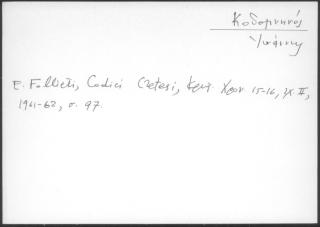 Κοδομηνός
Ἰωάννης
E. Follieri, Codici Cretesi, Κρητ. Χρον. 15-16, τχ. ΙΙ,
1961-62, σ. 97.